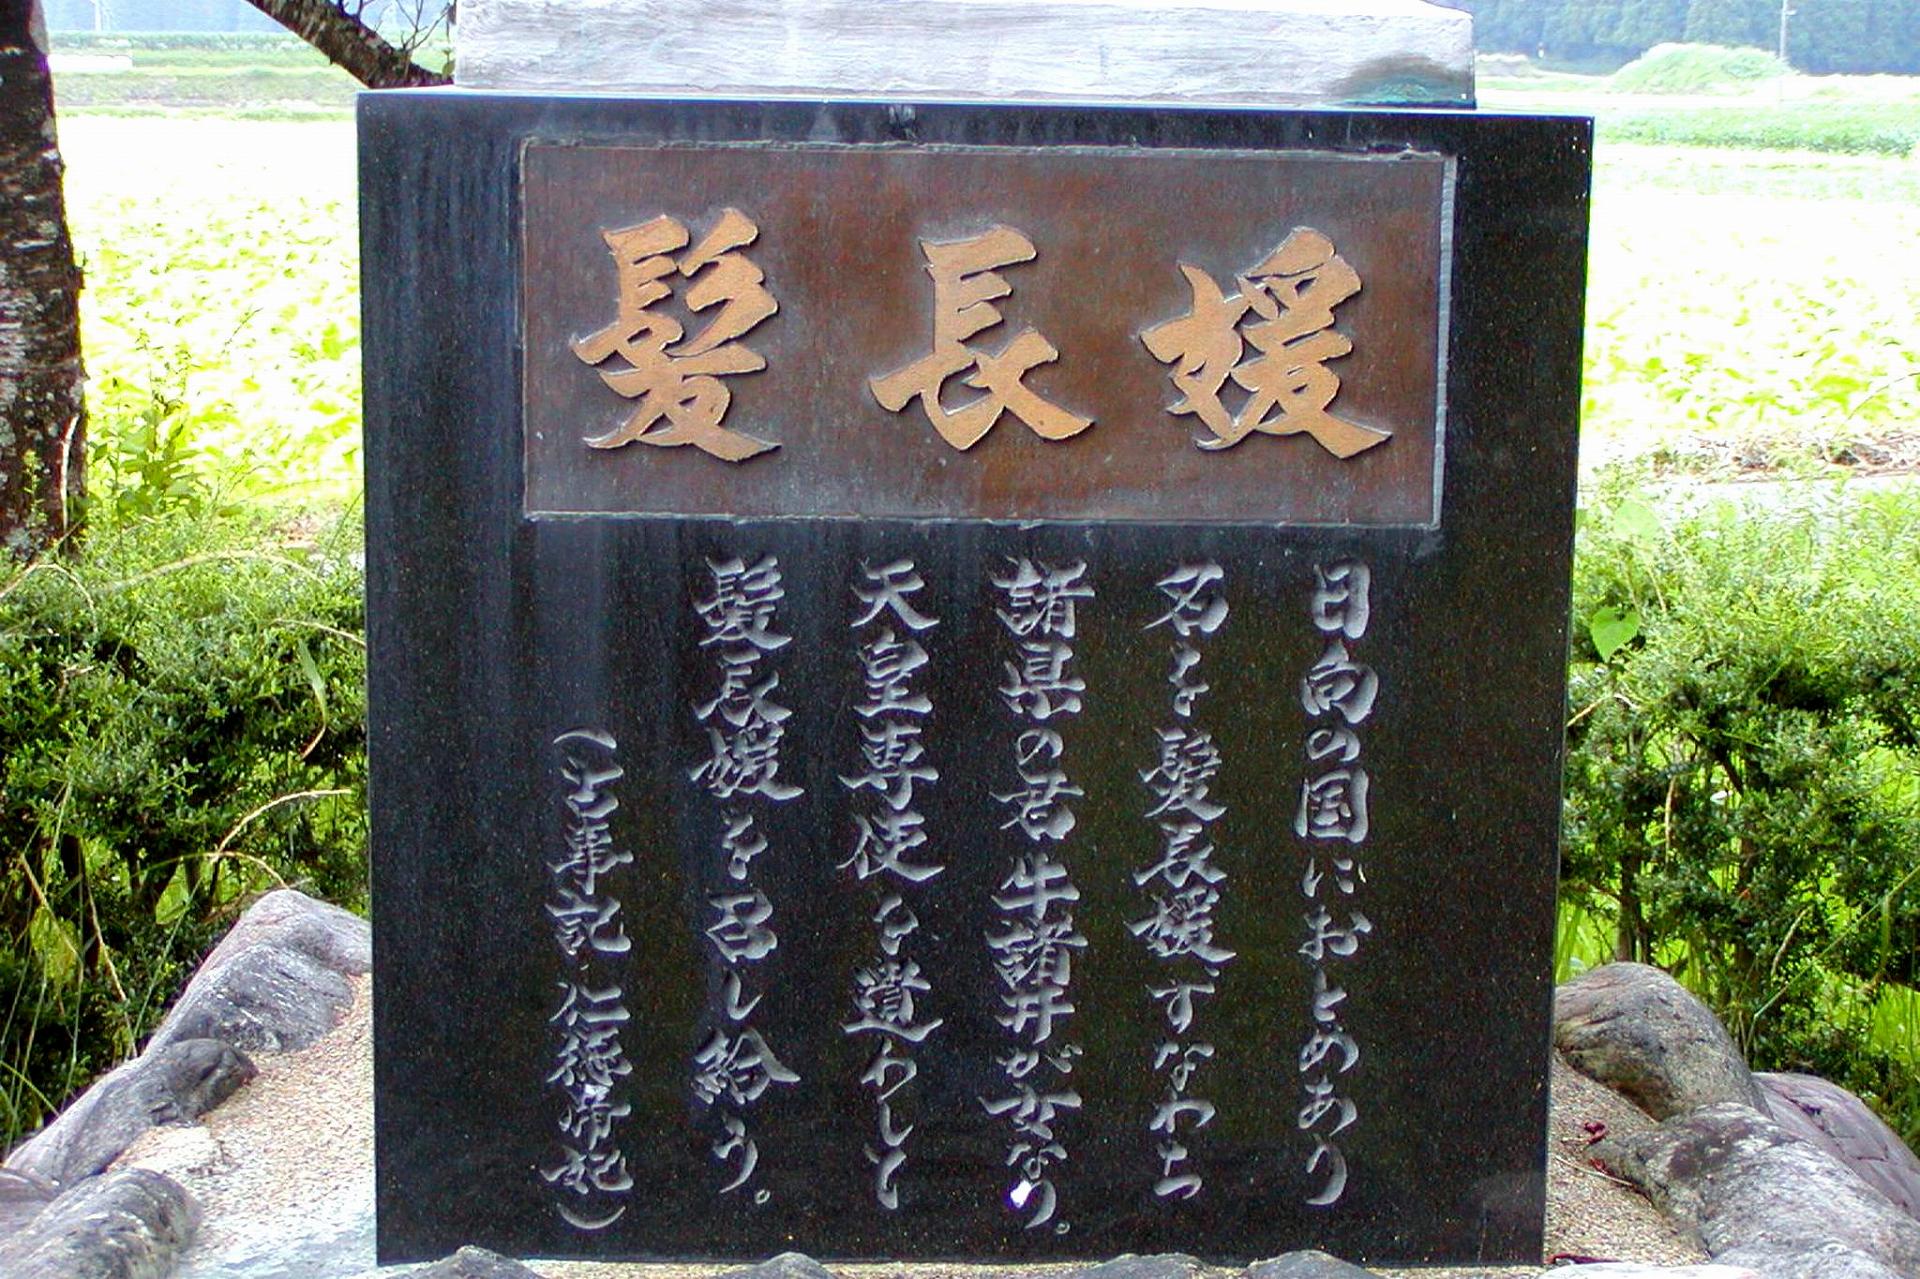 髪長媛
日向の国におとめあり
名を髪長媛、すなわち
諸県の君牛諸井が女なり。
天皇専使を遣わして
髪長媛を召し給う。
（古事記、仁徳帝記）